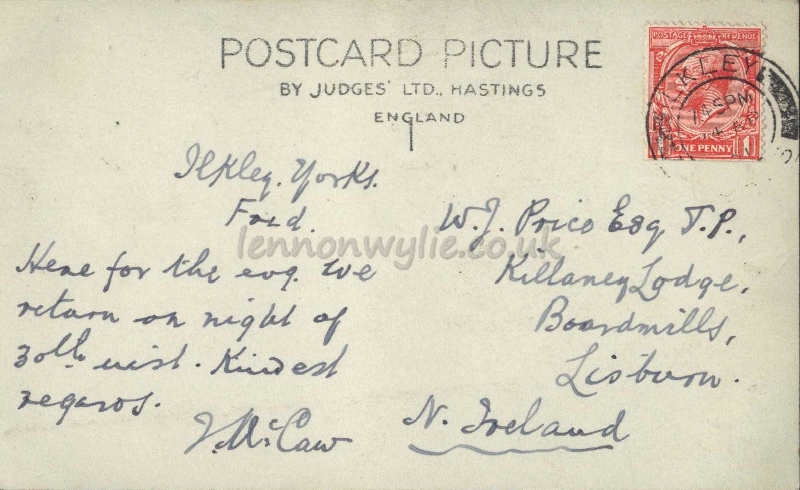 POSTCARD PICTURE
BY JUDGES' LTD., HASTINGS
ENGLAND
POSTAGE REVENUE
ONE PENNY 1
ILKLEY
7 45 PM
Ilkley. Yorks.
Frid.
Here for the evg. We
return on night of
30th inst. Kindest
regards.
J. McCaw
W.J. Price Esq J.P.,
Killaney Lodge.
Boardmills,
Lisburn.
N. Ireland
lennonwylie.co.uk